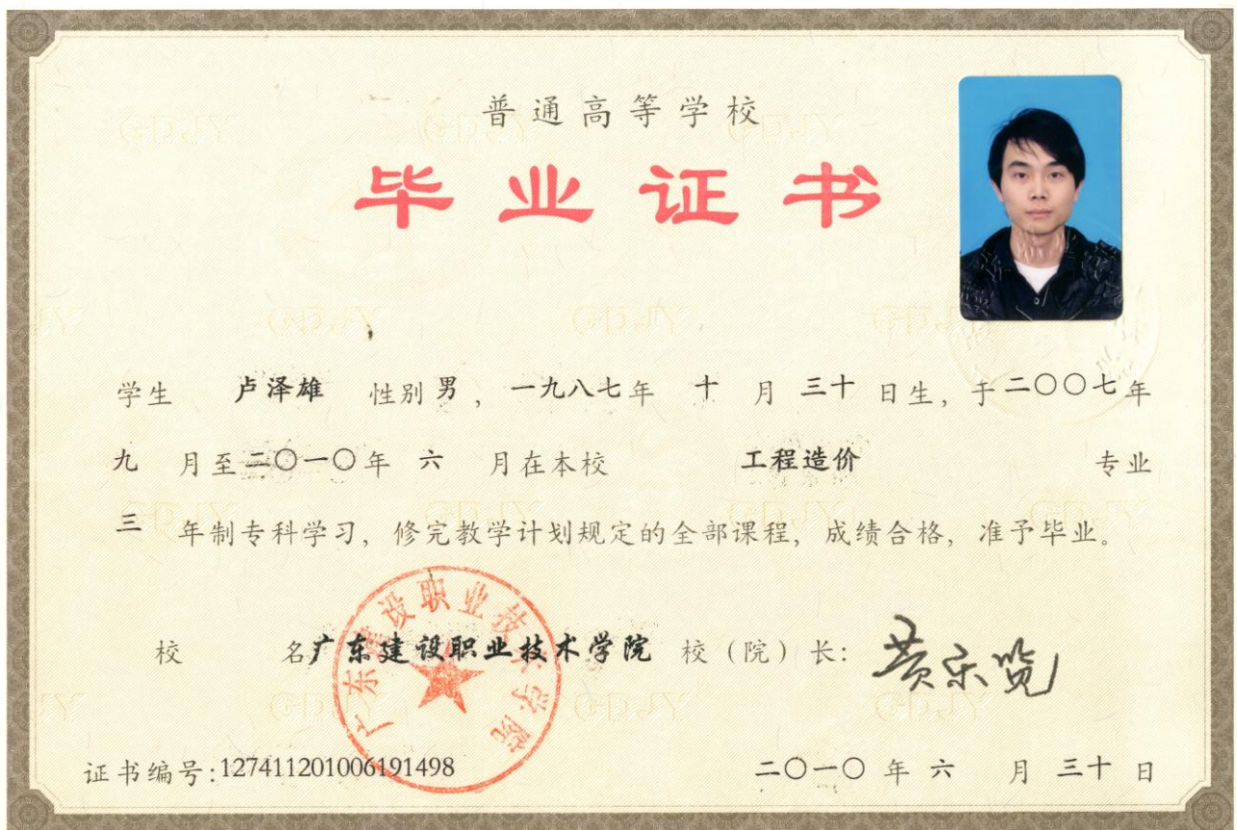 普通高等学校
毕业证书
学生 卢泽雄 性别 男，一九八七年 十 月 三十 日生，于二〇〇七年
九 月至二〇一〇年 六 月在本校 工程造价 专业
三 年制专科学习，修完教学计划规定的全部课程，成绩合格，准予毕业。
广东建设职业技术学院
校 名广东建设职业技术学院 校（院）长：
证书编号:127411201006191498 二〇一〇 年 六 月 三十 日
GDJY